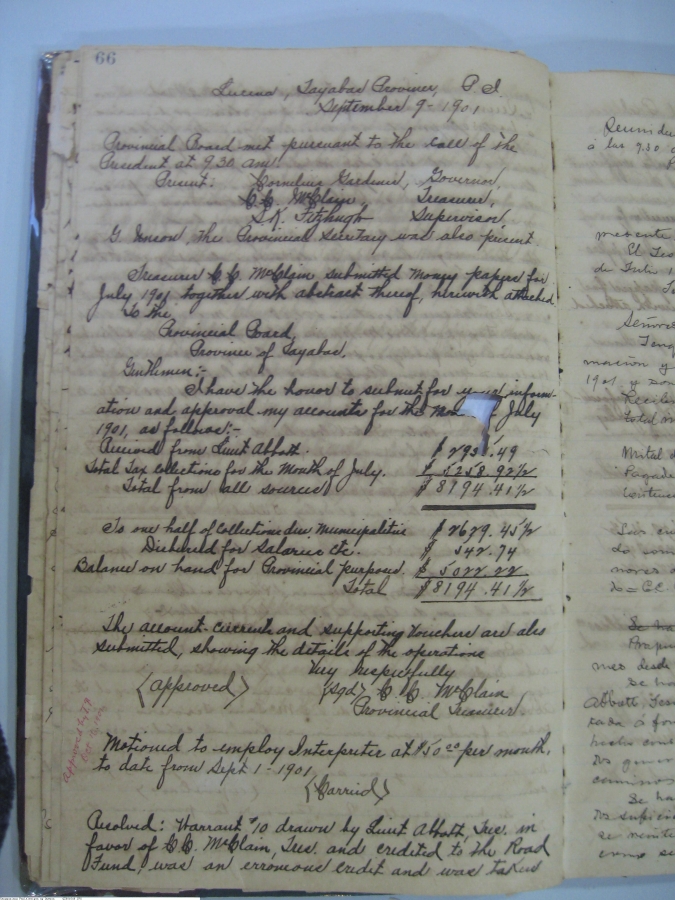 66
Lucena, Tayabas Province, P.I.
September 9- 1901
Provincial Board met pursuant to the call of the
President at 9.30 am!
Present: Cornelius Gardener, Governor,
C.C. McClain, Treasurer,
S.K. Fitzhugh Supervisor,
G. Unson, the Provincial Secretary was also present
Treasurer C.C. McClain submitted money papers for
July 1901, together with abstract thereof, herewith attached
To the,
Provincial Board,
Province of Tayabas,
Gentlemen:-
I have the honor to submit for your inform-
ation and approval my accounts for the July
1901, as follows:-
Received from Lieut Abbott. $ 2935.49
Total Tax collections for the Month of July. $ 5258.92½
Total from all sources $ 8194.41½
To one half of Collections due Municipalities $ 2629.45½
Disbursed for Salaries etc. $ 542.74
Balance on hand for Provincial purposes. $ 5022.22
Total $8194.41½
The account-currents and supporting vouchers are also
submitted, showing the details of the operations
Very respectfully
(approved) (sgd) C.C. McClain
Provincial Treasurer.
Approved by
Motioned to employ Interpreter at $50.00 per month,
to date from Sept 1-1901
(Carried)
Resolved: Warrant #10 drawn by Lieut Abbott, Tres. in
favor of C.C. McClain, Tres. and credited to the Road
Fund, was an erroneous credit and was taken
á las 9.30
presente
El Tes
de Julio 1
Señores
Teng
macion y
1901 y son
Recibi
total
Mitad d
Pagado
do com
Se ha
mes desde
Se ha
Abbott, Tes
Se ha